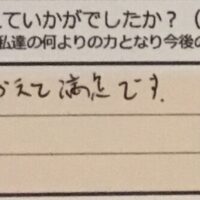 ていかがでしたか？（
私達の何よりの力となり今後の
かえて満足です.